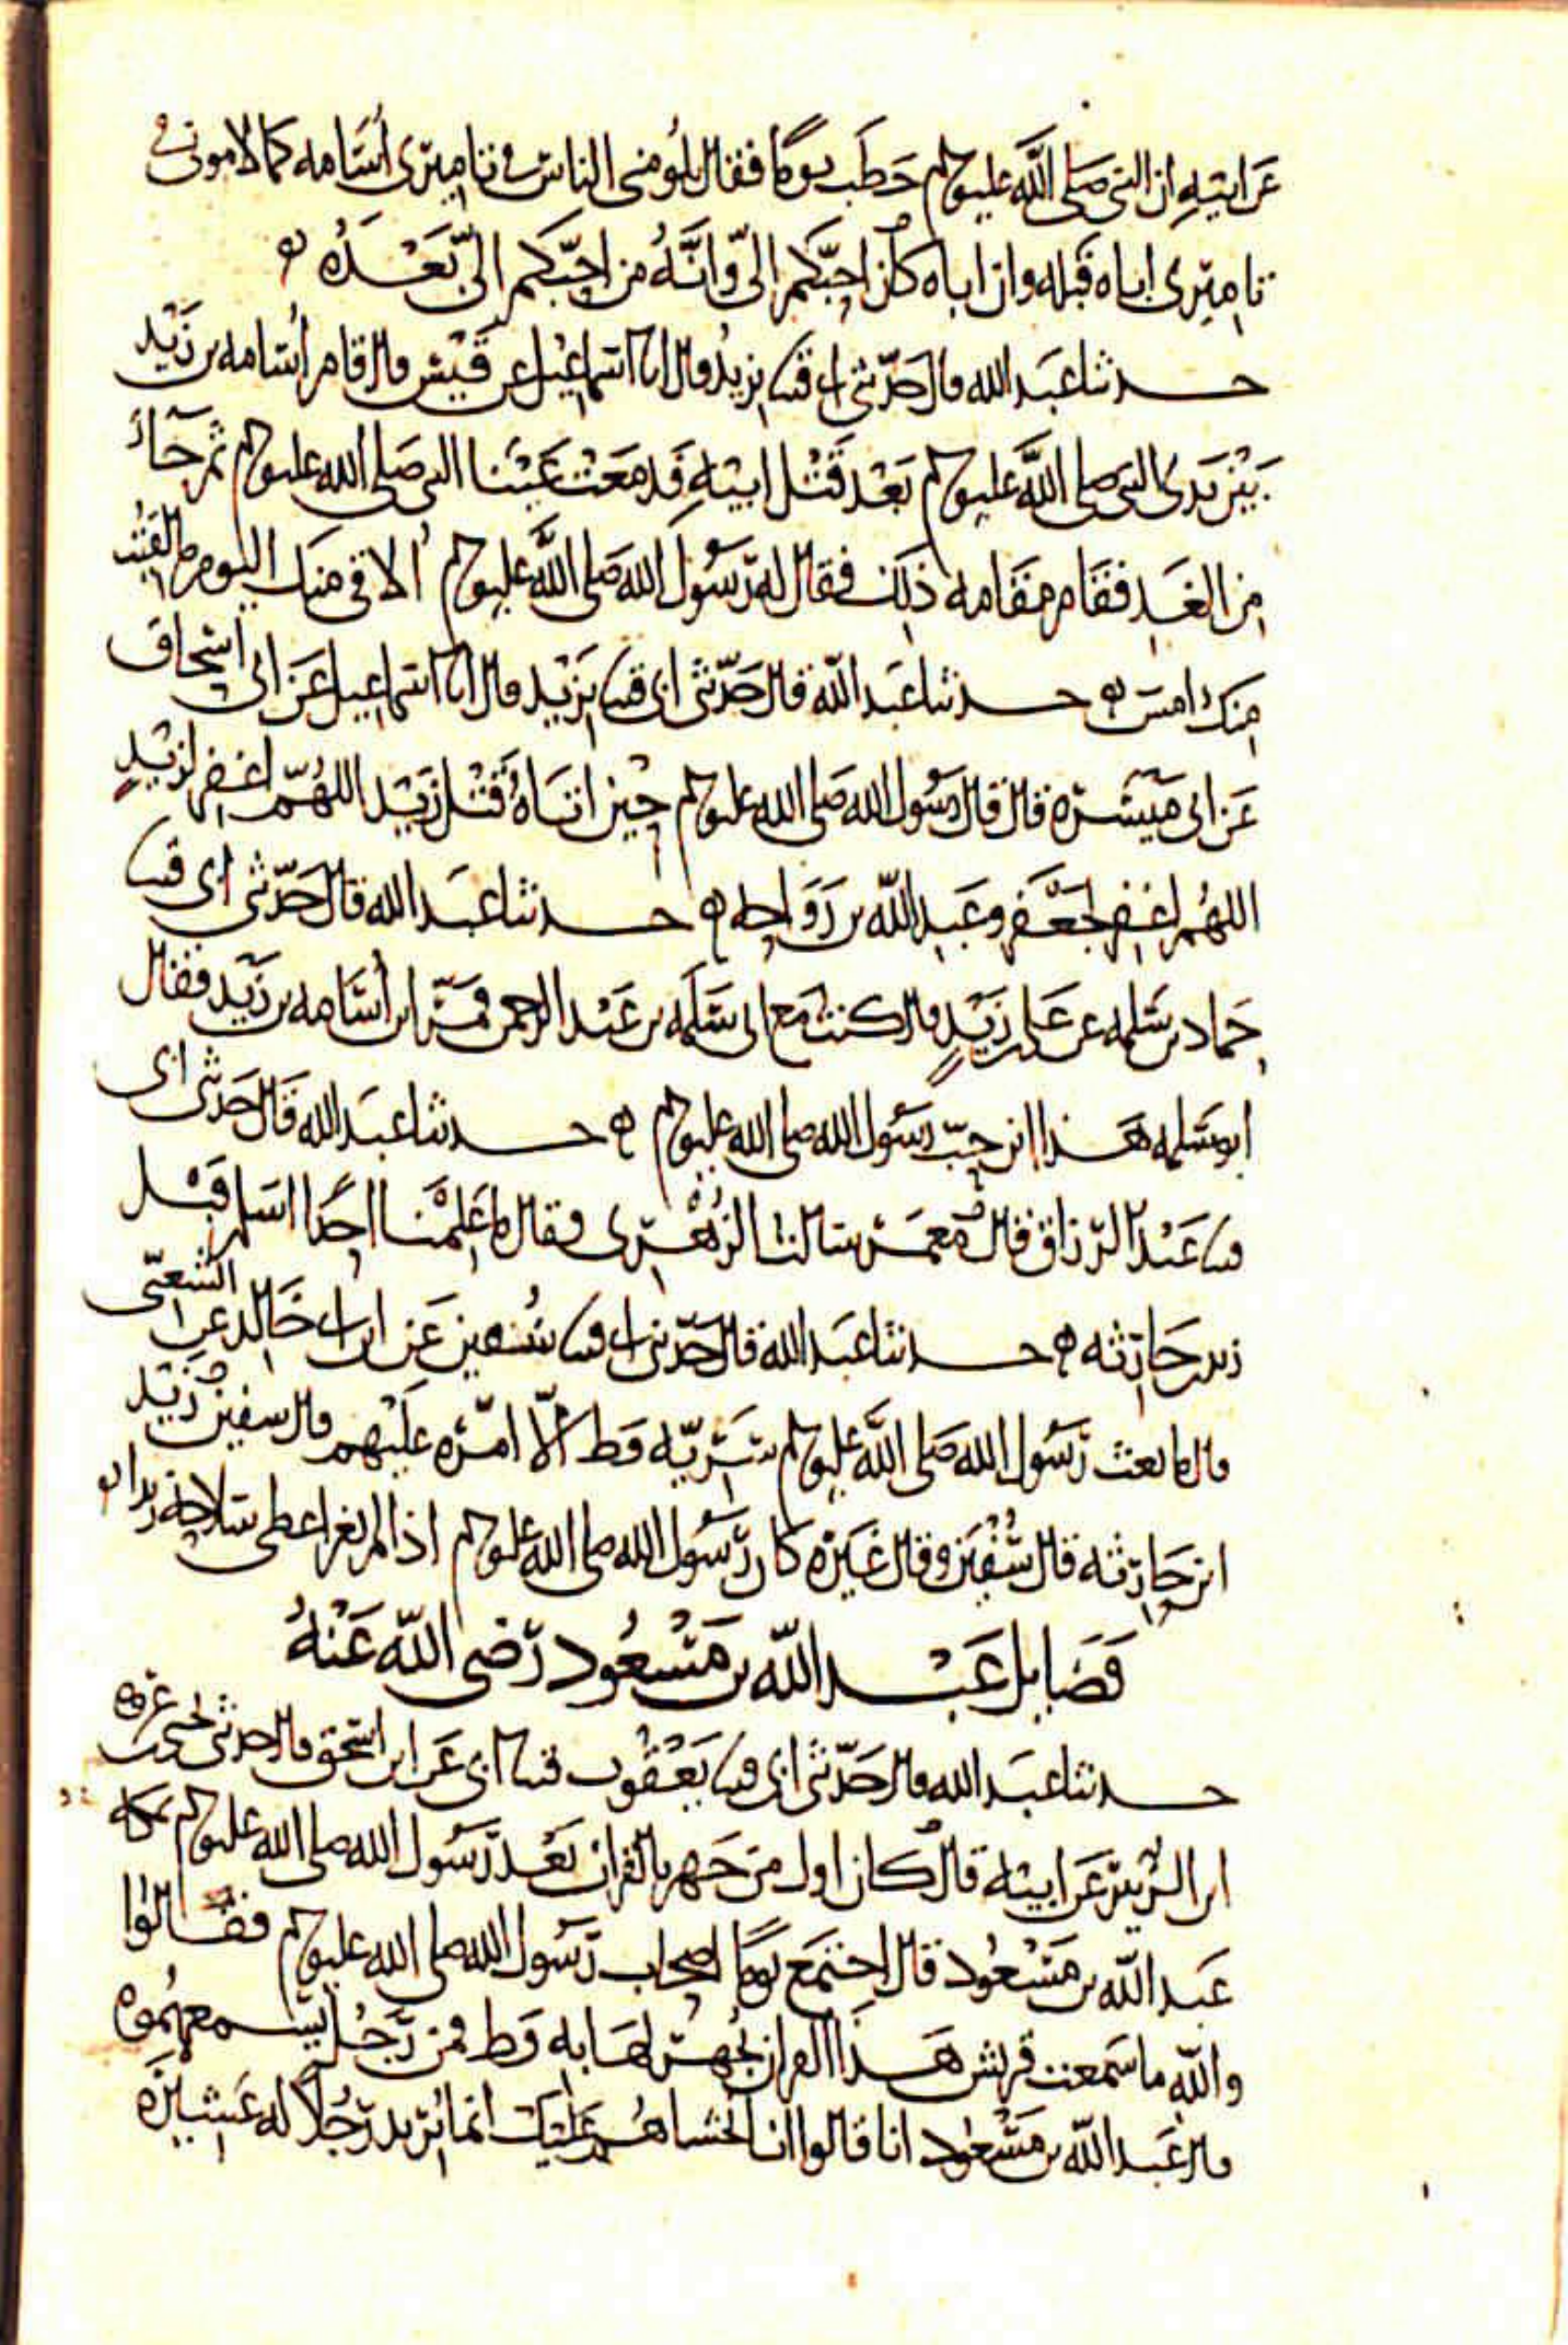 عَن ابيهِ ان النبي صَلى اللَّه عليه وسلم خطَب يومًا فقال يلُومني الناس في تاميري أُسَامه كما لاموني في
تاميري اباه قَبله وان اباه كان احبّكم الىّ وَانَّهُ من احِبّكم الىّ بَعْدَهُ ه
حدثنا عبَد الله قال حَدّثني ابي قثنا يزيدُ قال انا اسماعِيْل عن قَيْس قال قام أُسَامه بن زَيْد
بَيْن يَدَي النبي صلى اللَّه عليه وسلم بَعْد قَتْل ابيْهِ فَدمَعَتْ عَيْنا النبي صَلى الله عليه وسلم ثم جَآءَ
مِن الغَدِ فقَام مقَامه ذلِك فقال له رَسُولُ الله صَلى اللَّه عليه وسلم أُلاقي منِك اليوم ما لقيْتُ
مِنكَ امسِ ه حدثنا عبَد اللّه قال حَدّثني ابي قثنا يزَيْد قال انا اسماعيل عَن ابي اسْحاق
عَن ابي مَيْسَرَه قال قال رسُول الله صَلى الله عليه وسلم حِيْن اتَاهُ قَتْل زَيْد اللهُمّ اغفِر لزَيْدٍ
اللهُمّ اغفِر لجَعْفَر وعَبدِ اللّه بن رَوَاحِه ه حدثنا عبَد الله قال حَدّثني ابي قثنا
حَماد بن سَلمه عن عَلي بن زَيْدٍ قال كنتُ مَع ابي سَلَمَه بن عَبْد الرحمن فمَرّ ابن أُسَامه بن زَيْد فقال
ابو سَلمه هَذا ابن حِبّ رسُول الله صلى الله عليه وسلم ه حدثنا عبَد الله قال حَدثني ابي
قثنا عَبْد الرّزاق قال مَعمَر سَالنا الزُهْري فقال ما عَلِمْنا احَدًا اسْلم قَبْل
زيد بن حَارِثه ه حدثنا عَبد الله قال حَدّثني ابي قثنا سُفين عَن ابن ابي خَالِد عن الشَعبّي
قال ما بعث رَسُول الله صَلى اللَّه عليه وسلم سَرِيّه قط الّا امّرَه عَلَيْهم قال سفين زَيْد
ابن حَارِثه قال سُفْيَن وقال غَيْرَه كان رَسُول الله صلى الله عليه وسلم اذا لم يغز اعطى سَلاحَه زيدا ه
فَضَايل عَبْد اللّه بن مَسْعُود رَضى اللّه عَنْهُ
حدثنا عبَد الله قال حَدّثني ابي قثنا يَعْقُوب قثنا ابي عَن ابن اسْحق قال حدثني يحيى بن عُرْوه
ابن الزُبَيْر عَن ابيه قال كان اول مَن جَهر بالقران بَعْد رَسُول الله صلى الله عليه وسلم بمكه
عَبد اللّه بن مَسْعُود قال اجتمَع يومًا اصحاب رَسُول الله صلى الله عليه وسلم فقالوا
واللّهِ ما سَمعت قريش هَذَا القران يُجْهَر لهَا به قط فمن رَجُل يُسمعهُموه
قال عَبد اللّه بن مَسْعُود انا قالوا انا نخشاهُم عَلَيك انما نُريد رَجُلًا له عَشيرَه